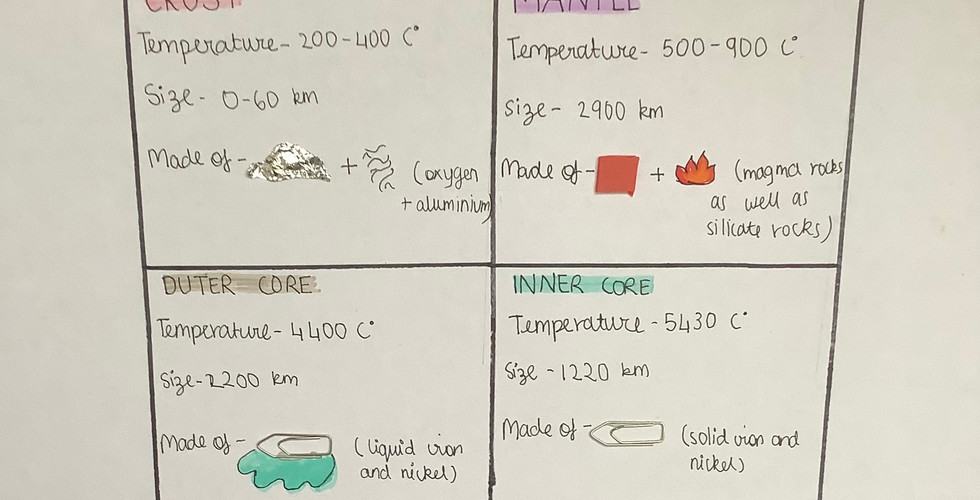 CRUST
Temperature - 200-400 C°
Size - 0-60 km
Made of - + (oxygen
+ aluminium)
MANTLE
Temperature - 500-900 C°
Size - 2900 km
Made of - + (magma rocks
as well as
silicate rocks)
OUTER CORE
Temperature - 4400 C°
Size - 2200 km
Made of - (liquid iron
and nickel)
INNER CORE
Temperature - 5430 C°
Size - 1220 km
Made of - (solid iron and
nickel)